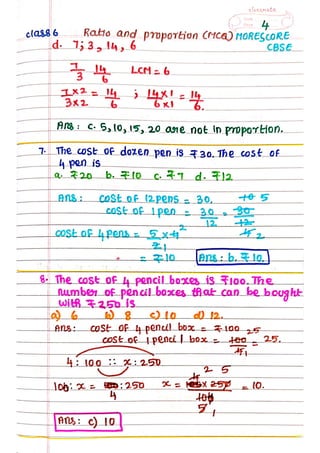 classmate
4
class 6 Ratio and proportion (MCQ) MORESCORE
CBSE
d. 7, 3, 14, 6
7/3 14/6 LCM = 6
7×2/3×2 = 14/6 ; 14×1/6×1 = 14/6.
Ans: c. 5, 10, 15, 20 are not in proportion.
7. The cost of dozen pen is ₹30. The cost of
4 pen is
a. ₹20 b. ₹10 c. ₹7 d. ₹12
Ans: cost of 12 pens = 30.
cost of 1 pen = 30/12 = 30/12 5/2
cost of 4 pens = 5×4/2 2/1
= ₹10 Ans: b. ₹10.
8. The cost of 4 pencil boxes is ₹100. The
number of pencil boxes that can be bought
with ₹250 is
a) 6 b) 8 c) 10 d) 12.
Ans: cost of 4 pencil box = ₹100
cost of 1 pencil box = 100/4 25/1 = 25.
4 : 100 :: x : 250
100 : x = 4 : 250 x = 4 × 250 / 100 = 10.
Ans: c) 10